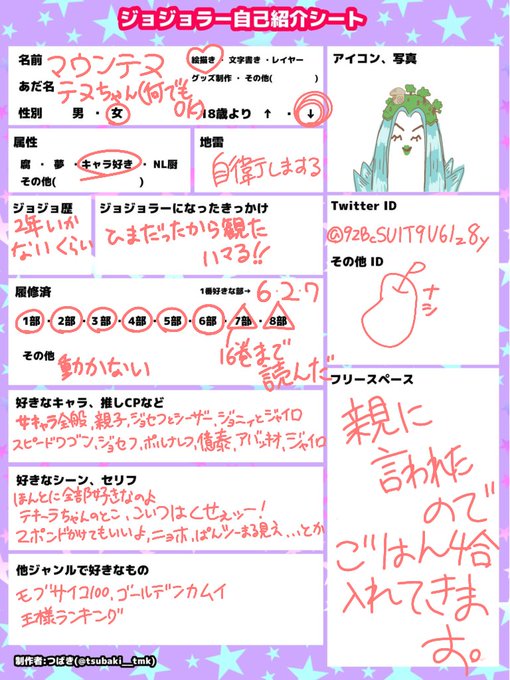 ジョジョラー自己紹介シート
名前 マウンテヌ
絵描き・文字書き・レイヤー
グッズ制作・その他( )
あだ名 テヌちゃん(何でもOK)
性別 男・女 18歳より ↑・↓
アイコン、写真
属性
腐・夢・キャラ好き・NL厨
その他( )
地雷
自衛しまする
ジョジョ歴
2年いか
ないくらい
ジョジョラーになったきっかけ
ひまだったから観た
ハマる!!
Twitter ID
@92BcSU1T9U6Iz8y
その他 ID
ナシ
履修済
1番好きな部→ 6・2・7
1部・2部・3部・4部・5部・6部・7部・8部
16巻まで
読んだ
その他 動かない
好きなキャラ、推しCPなど
女キャラ全般、親子、ジョセフとシーザー、ジョニィとジャイロ
スピードワゴン、ジョセフ、ポルナレフ、億泰、アバッキオ、ジャイロ
好きなシーン、セリフ
ほんとに全部好きなのよ
テキーラちゃんのとこ、こいつはくせぇッー!
2ポンドかけてもいいよ、ニョホ、ぱんツーまる見え…とか
他ジャンルで好きなもの
モブサイコ100、ゴールデンカムイ
王様ランキング
フリースペース
親に
言われた
ので
ごはん4合
入れてきま
す。
制作者:つばき(@tsubaki__tmk)